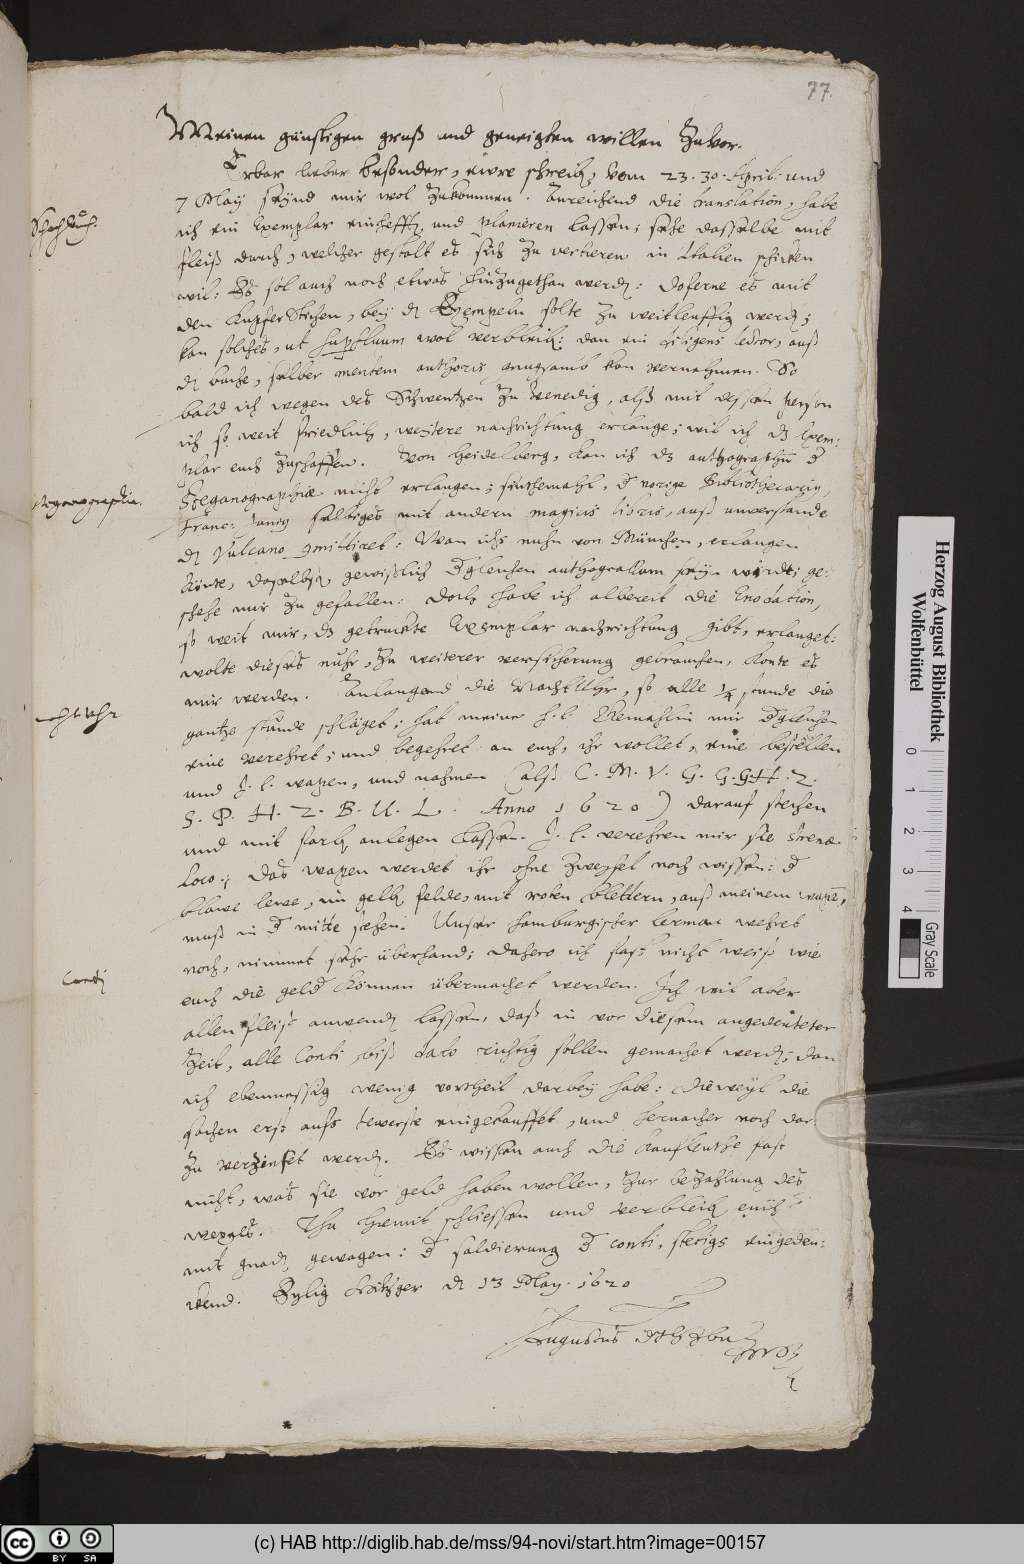 77.
Meinen günstigen gruß und geneigten willen zuvor.
Erbar lieber besonder, eure schreib, vom 23. 30. April. und
7 May seynd mir wol zukommen. Anreichend die translation, habe
Schachbuch.
ich ein Exemplar einhefft, und planieren lassen; sehe dasselbe mit
fleiß durch, welcher gestalt es sich zu vertieren in Italien schicken
wil: Es sol auch noch etwas hinzugethan werd: doferne es mit
den Kupfer Stichen, bey d Exempeln solte zu weitleufftig werd;
kan solches, ut superfluum wol verbleib: dan ein diligens lector, auß
d buche, selber mentem authoris gnugsamb kan vernehmen. So
bald ich wegen des Schwentzen zu Venedig, alß mit dessen person
ich so weit friedlich, weitere nachrichtung erlange; wil ich dz Exem:
plar euch zuschaffen. Von Heidelberg, kan ich dz authographum d
Steganographia.
Steganographiae nicht erlangen; sinthemahl, d vorige Bibliothecarius,
Franc: Junius selbiges mit andern magicis libris, auß unverstande
d Vulcano committiret: Wan ichs nuhn von München, erlangen
könte, daselbst gewißlich dgleichen authographum seyn würdt; ge:
schehe mir zu gefallen: doch habe ich albereit die Enodation,
so weit mir, dz getruckte Exemplar nachrichtung gibt, erlanget:
wolte dieses nuhr, zu weiterer versicherung gebrauchen, konte es
mir werden. Anlangend die Nachtuhr, so alle 1/4 stunde die
gantze stunde schläget; hat meine h. l. Gemahlin mir dgleichen
eine verehret; und begehret an euch, ihr wollet, eine bestellen
und J. l. wapen, und nahmen (alß C. M. V. G. G. G H. Z.
S. P. H. Z. B. U. L. Anno 1620) darauf stechen
und mit farb anlegen lassen. J. l. verehren mir sie strenae
loco; das wapen werdet ihr ohne zweyfel noch wissen: d
blawe lewe, im gelb felde, mit roten blettern, auß meinem wapen,
muß in d mitte stehen. Unser hamburgischer lerman wehret
noch, nimmet sehr überhand; dahero ich fast nicht weiß wie
Conti
euch die geld können übermachet werden. Ich wil aber
allen fleiß anwend lassen, daß in vor diesem angedeuteter
Zeit, alle Conti biß dato richtig sollen gemachet werd; dan
ich ebenmessig wenig vortheil darbey habe: dieweyl die
sachen erst aufs tewerste eingekauffet, und hernacher noch dar
zu verzinset werd. Es wissen auch die Kaufleuthe fast
nicht, was sie vor geld haben wollen, zur bezahlung des
Thu hiemit schliessen und verbleib euch
mit gnad gewogen: d saldierung d conti, stetigs eingeden:
ckend. Eylig Hitzger d 13 May. 1620
Augustus